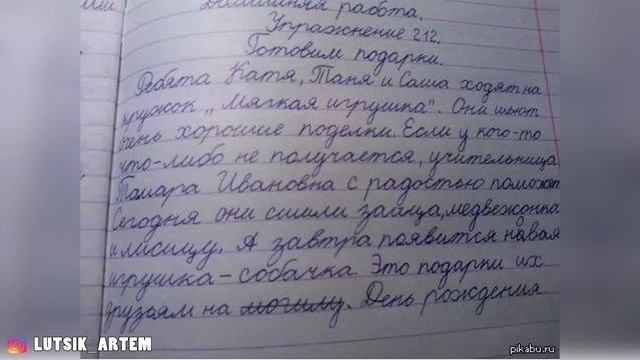 Домашняя работа.
Упражнение 212.
Готовим подарки.
Ребята Катя, Таня и Саша ходят на
кружок „Мягкая игрушка". Они шьют
очень хорошие поделки. Если у кого-то
что-либо не получается, учительница
Тамара Ивановна с радостью поможет
Сегодня они сшили зайца, медвежонка
и лисицу. А завтра появится новая
игрушка - собачка. Это подарки их
друзьям на могилу. День рождения.
LUTSIK_ARTEM
pikabu.ru